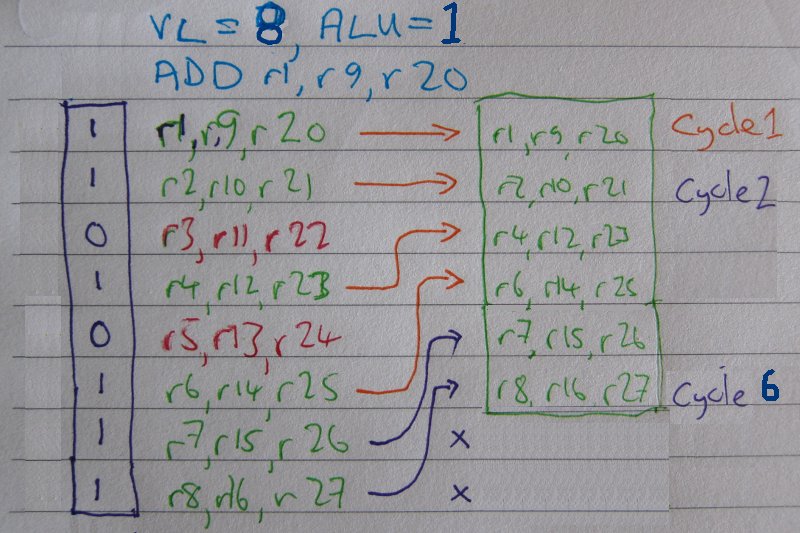 VL = 8, ALU = 1
ADD r1, r9, r20
1 r1, r9, r20 r1, r9, r20 Cycle1
1 r2, r10, r21 r2, r10, r21 Cycle2
0 r3, r11, r22 r4, r12, r23
1 r4, r12, r23 r6, r14, r25
0 r5, r13, r24 r7, r15, r26
1 r6, r14, r25 r8, r16, r27 Cycle 6
1 r7, r15, r26 x
1 r8, r16, r27 x